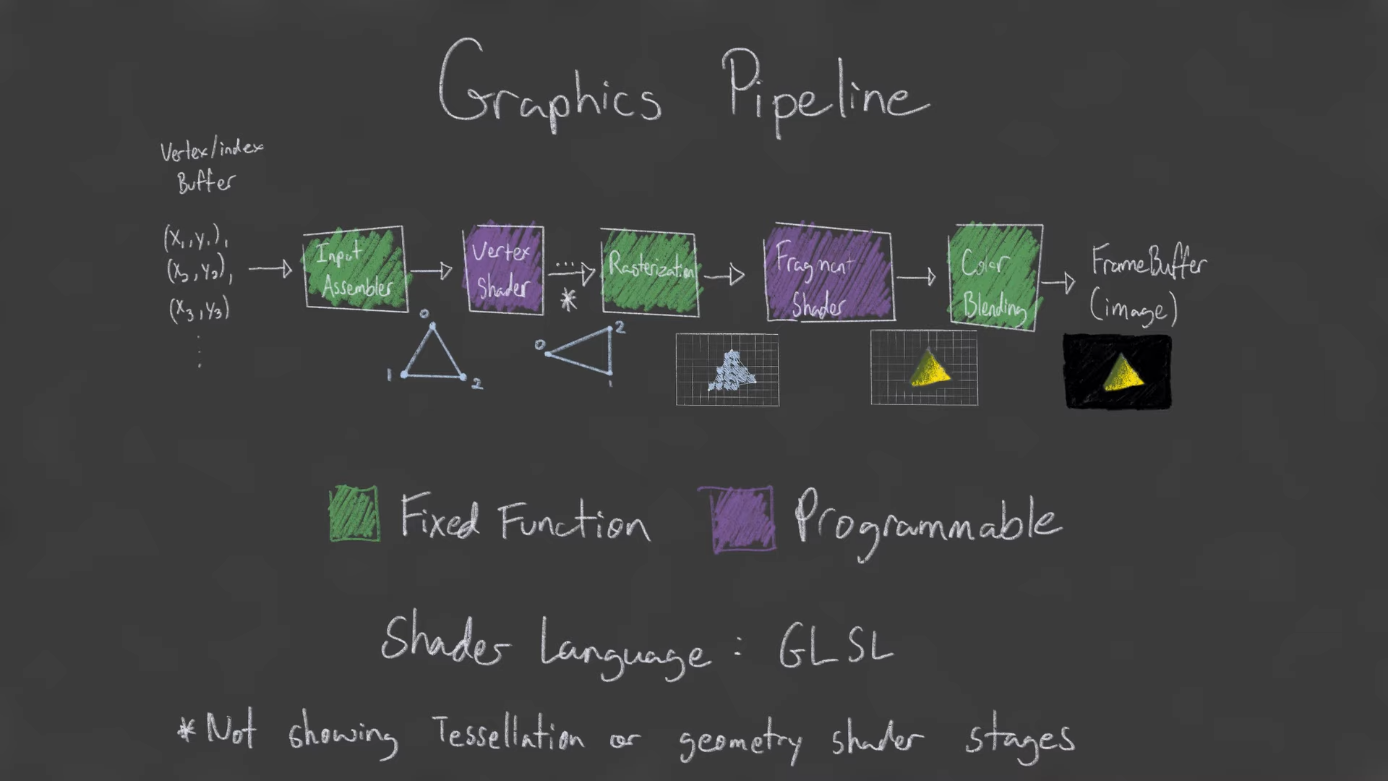 Graphics Pipeline
Vertex/index
Buffer
(x₁,y₁),
(x₂,y₂),
(x₃,y₃)
⋮
Input
Assembler
Vertex
Shader
...
*
Rasterization
Fragment
Shader
Color
Blending
FrameBuffer
(image)
0
1
2
0
2
1
Fixed Function
Programmable
Shader Language : GLSL
*Not showing Tessellation or geometry shader stages